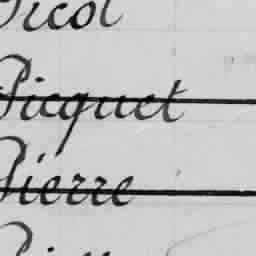 Picot
Picquet
Pierre